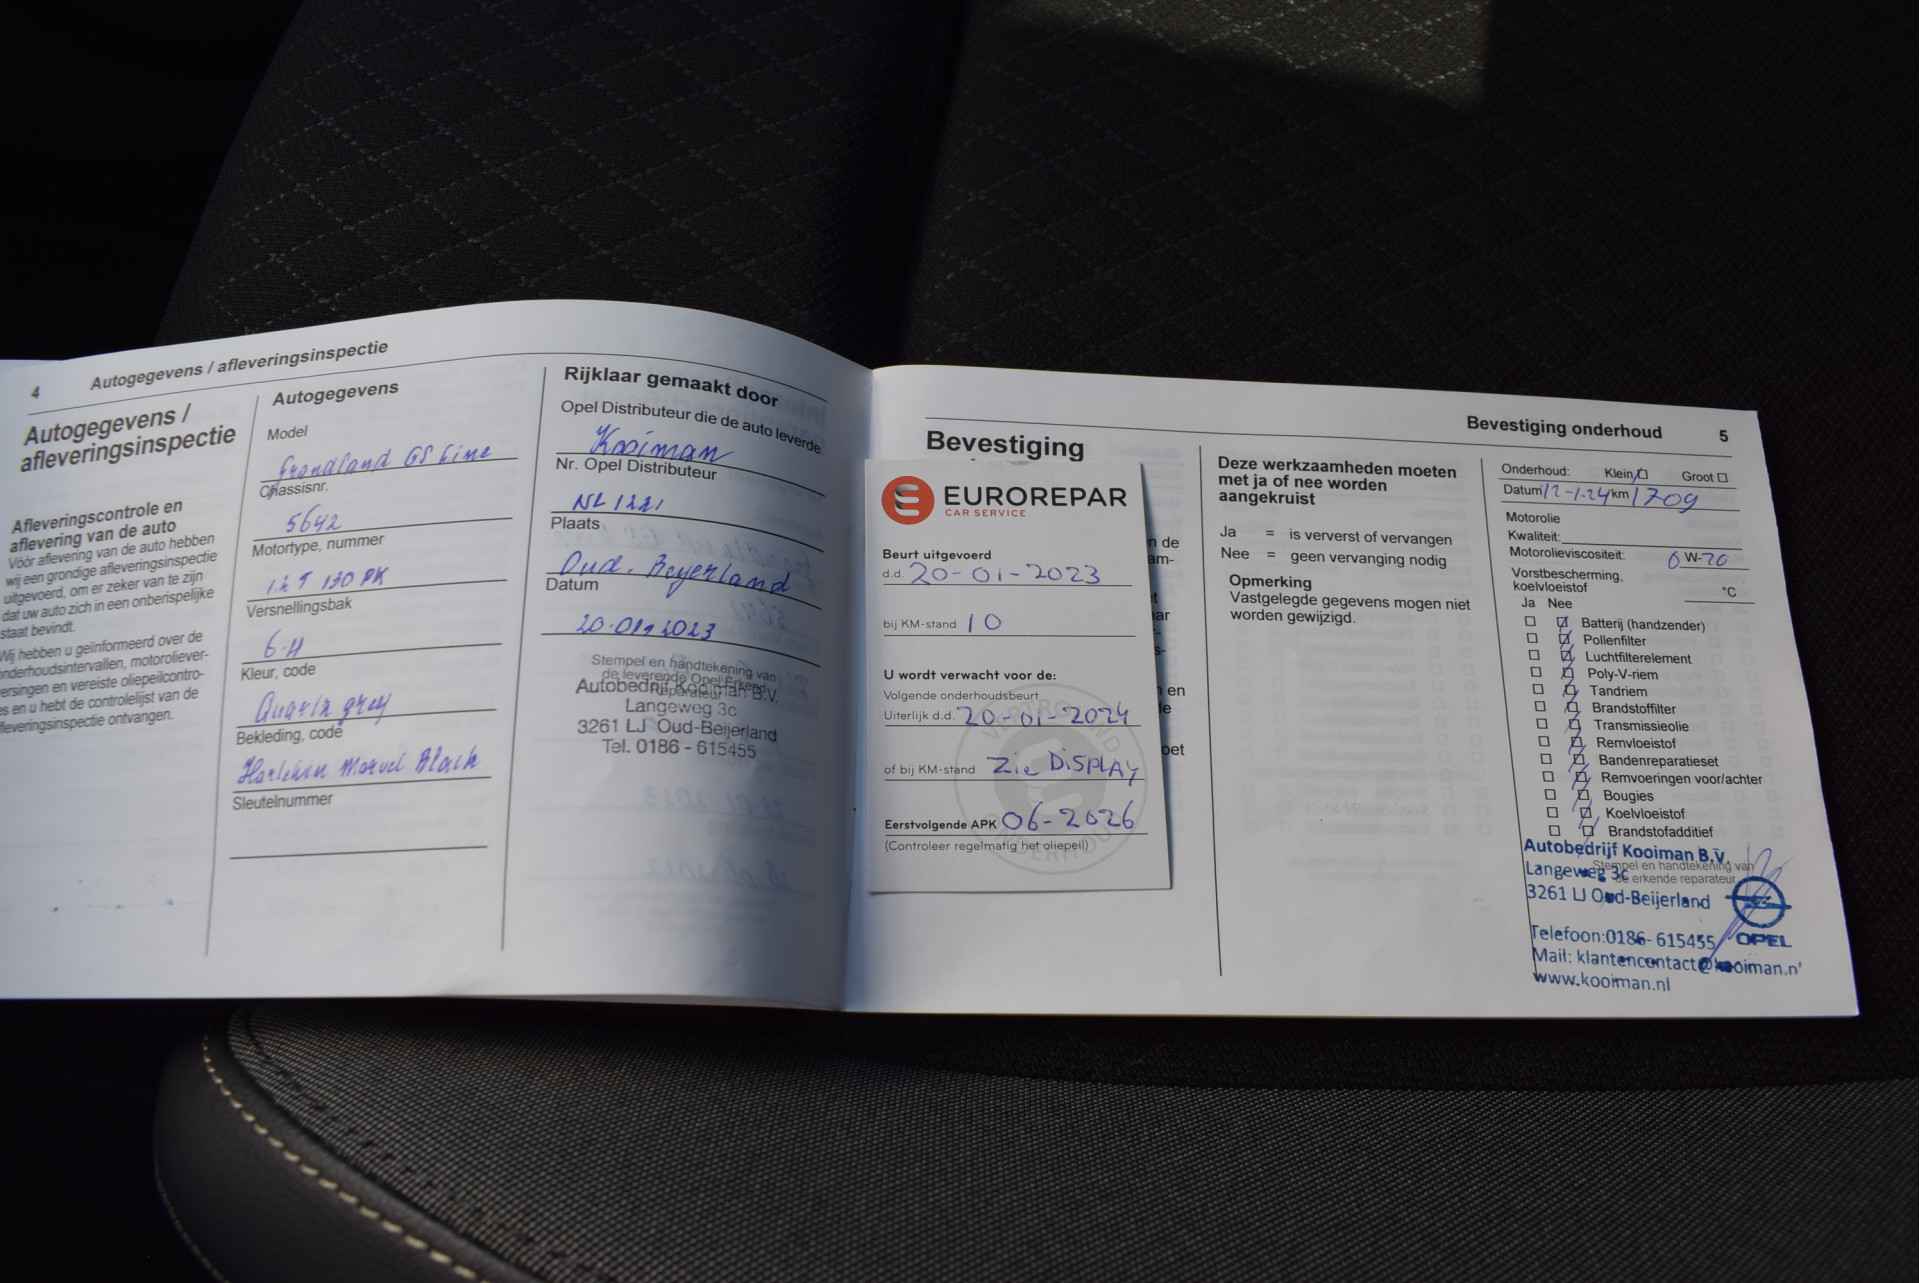 4
Autogegevens / afleveringsinspectie
Autogegevens /
afleveringsinspectie
Afleveringscontrole en
aflevering van de auto
Vóór aflevering van de auto hebben
wij een grondige afleveringsinspectie
uitgevoerd, om er zeker van te zijn
dat uw auto zich in een onberispelijke
staat bevindt.
Wij hebben u geïnformeerd over de
onderhoudsintervallen, motoroliever-
versingen en vereiste oliepeilcontro-
es en u hebt de controlelijst van de
afleveringsinspectie ontvangen.
Autogegevens
Model
Grandland GS Line
Chassisnr.
5642
Motortype, nummer
1.2 T 130 PK
Versnellingsbak
6-H
Kleur, code
Quartz grey
Bekleding, code
Marvel Black
Sleutelnummer
Rijklaar gemaakt door
Opel Distributeur die de auto leverde
Kooiman
Nr. Opel Distributeur
NL 1221
Plaats
Oud-Beyerland
Datum
20-01-2023
Stempel en handtekening van
de leverende Opel Erkend
Reparateur
Autobedrijf Kooiman B.V.
Langeweg 3c
3261 LJ Oud-Beijerland
Tel. 0186 - 615455
Bevestiging onderhoud
5
Bevestiging
EUROREPAR
CAR SERVICE
Beurt uitgevoerd
d.d. 20-01-2023
bij KM-stand 10
U wordt verwacht voor de:
Volgende onderhoudsbeurt
Uiterlijk d.d. 20-01-2024
of bij KM-stand Zie DISPLAY
Eerstvolgende APK 06-2026
(Controleer regelmatig het oliepeil)
Deze werkzaamheden moeten
met ja of nee worden
aangekruist
Ja = is ververst of vervangen
Nee = geen vervanging nodig
Opmerking
Vastgelegde gegevens mogen niet
worden gewijzigd.
Onderhoud: Klein Groot
Datum 12-1-24 km 1709
Motorolie
Kwaliteit:
Motorolieviscositeit: 0 W-20
Vorstbescherming,
koelvloeistof °C
Ja Nee
Batterij (handzender)
Pollenfilter
Luchtfilterelement
Poly-V-riem
Tandriem
Brandstoffilter
Transmissieolie
Remvloeistof
Bandenreparatieset
Remvoeringen voor/achter
Bougies
Koelvloeistof
Brandstofadditief
Stempel en handtekening van
de erkende reparateur
Autobedrijf Kooiman B.V.
Langeweg 3c
3261 LJ Oud-Beijerland
Telefoon:0186- 615455
OPEL
Mail: klantencontact@kooiman.nl
www.kooiman.nl